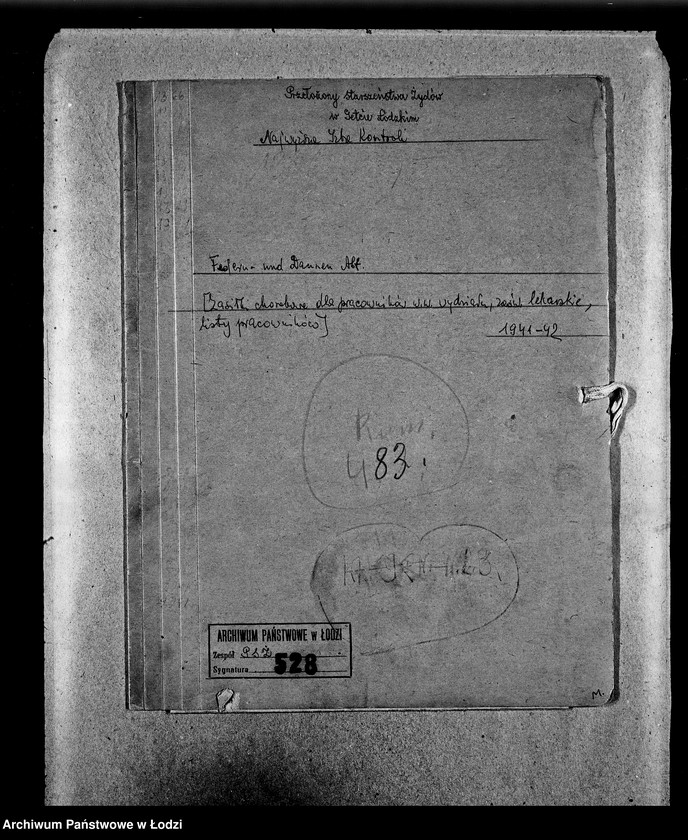 Przełożony starszeństwa Żydów
w Getcie Łódzkim
Najwyższa Izba Kontroli
Federn- und Daunen Abt.
[Zasiłki chorobowe dla pracowników w.w. wydziału, zaśw. lekarskie,
listy pracowników]
1941-42
483.
ARCHIWUM PAŃSTWOWE w ŁODZI
Zespół PSŻ
Sygnatura 528
M.
Archiwum Państwowe w Łodzi